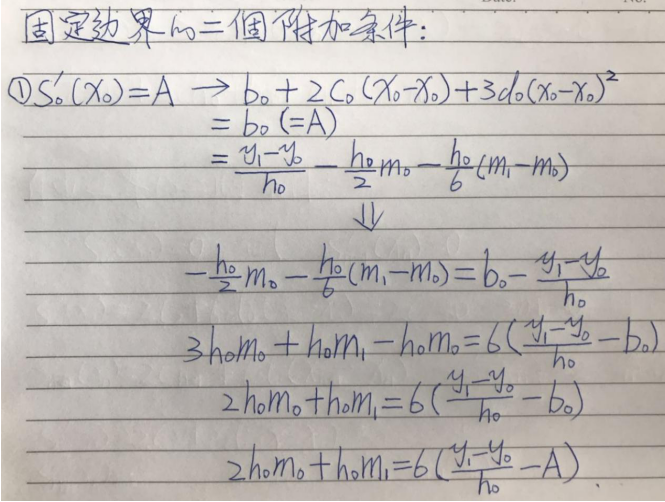 固定边界的二個附加条件:
①S₀′(x₀)=A → b₀+2c₀(x₀-x₀)+3d₀(x₀-x₀)²
= b₀(=A)
= (y₁-y₀)/h₀ - h₀/2 m₀ - h₀/6 (m₁-m₀)
⇓
-h₀/2 m₀ - h₀/6 (m₁-m₀) = b₀ - (y₁-y₀)/h₀
3h₀m₀+h₀m₁-h₀m₀=6((y₁-y₀)/h₀ - b₀)
2h₀m₀+h₀m₁=6((y₁-y₀)/h₀ - b₀)
2h₀m₀+h₀m₁=6((y₁-y₀)/h₀ - A)